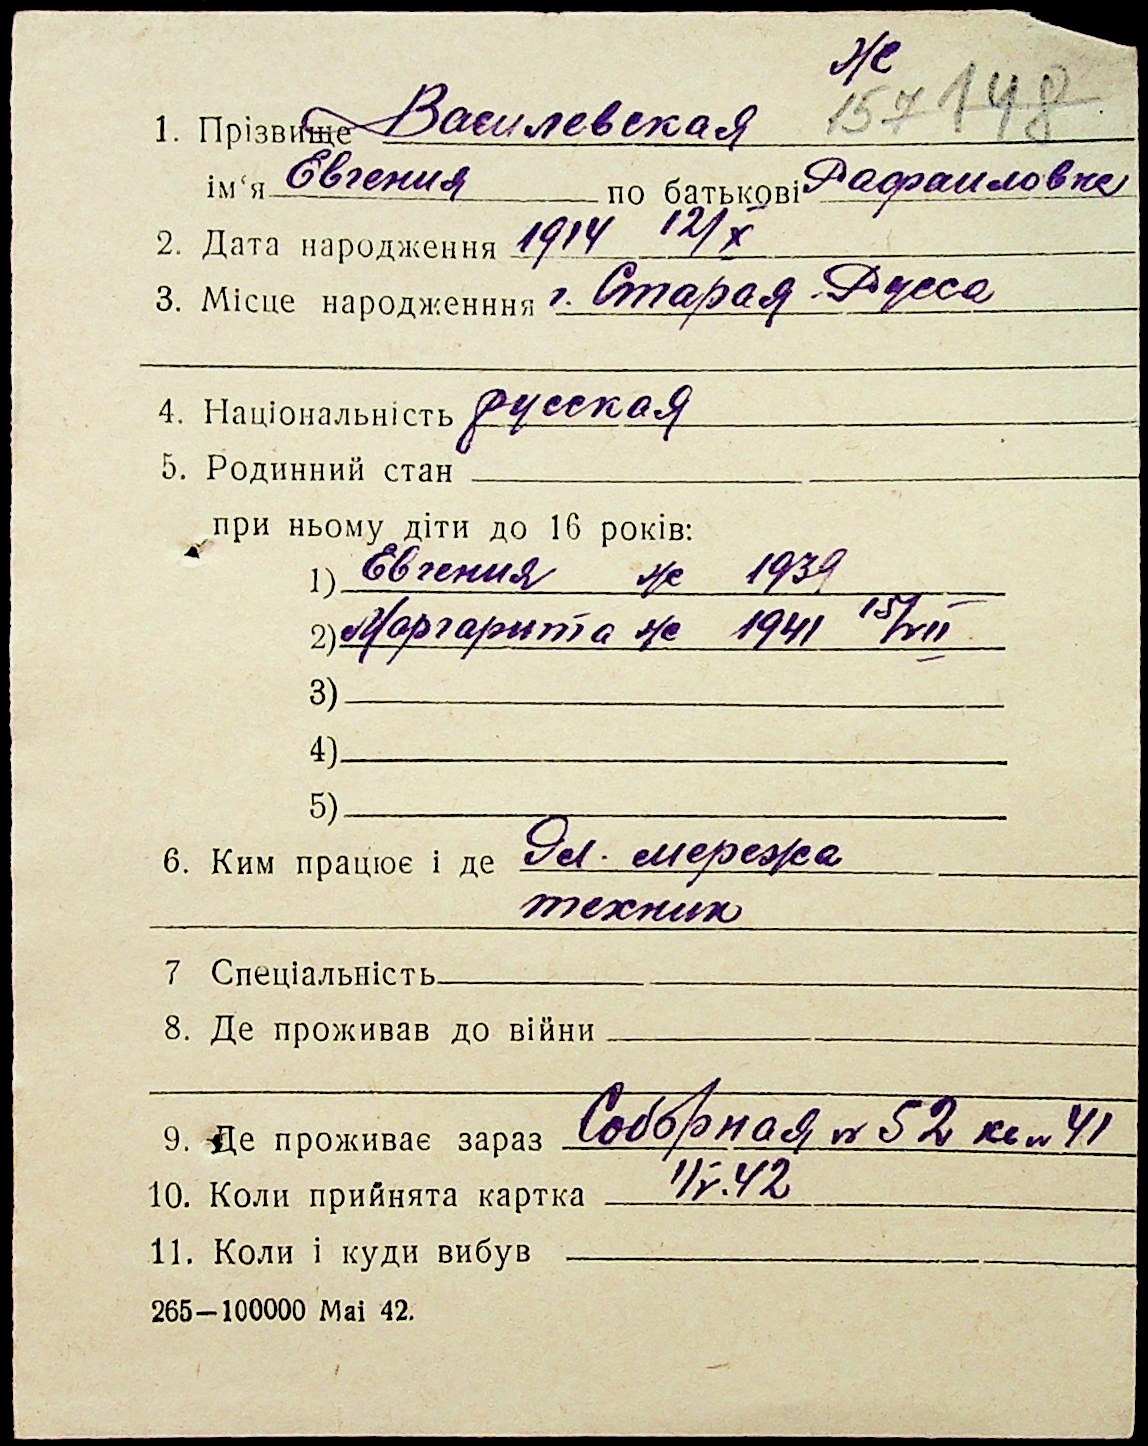 ж
157 148
1. Прізвище Василевская
ім‘я Евгения по батькові Рафаиловна
2. Дата народження 1914 12/X
3. Місце народженння г. Старая Русса
4. Національність русская
5. Родинний стан
при ньому діти до 16 років:
1) Евгения ж 1939
2) Маргарита ж 1941 15/VII
3)
4)
5)
6. Ким працює і де Эл. мережа
техник
7 Спеціальність
8. Де проживав до війни
9. Де проживає зараз Соборная № 52 кв № 41
10. Коли прийнята картка 1/V.42
11. Коли і куди вибув
265—100000 Маі 42.